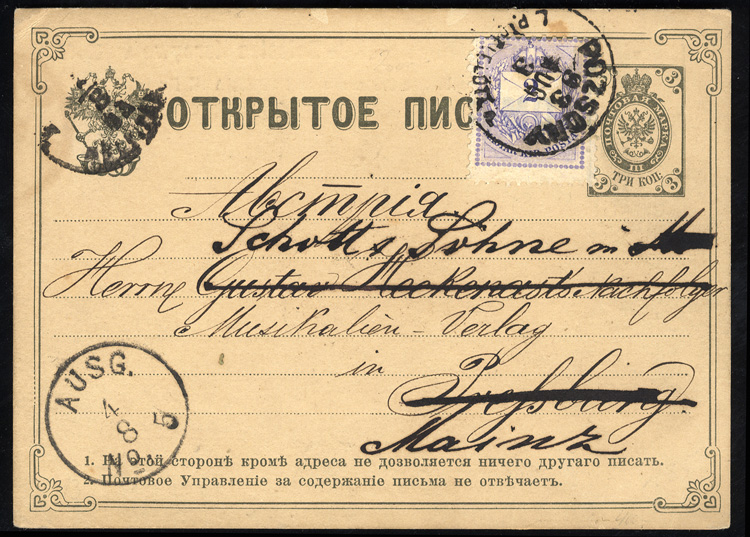 ОТКРЫТОЕ ПИС
POZSONY
83
AUG
3
3
ПОЧТОВАЯ МАРКА
III
ТРИ КОП.
3 3
Австрія.
Schotts Söhne in
Herrne Gustav Heckenast's Nachfolger
Musikalien-Verlag
in
Preßburg.
Mainz
AUSG.
4
8 5
No.
1. На этой сторонѣ кромѣ адреса не дозволяется ничего другаго писать.
2. Почтовое Управленіе за содержаніе письма не отвѣчаетъ.